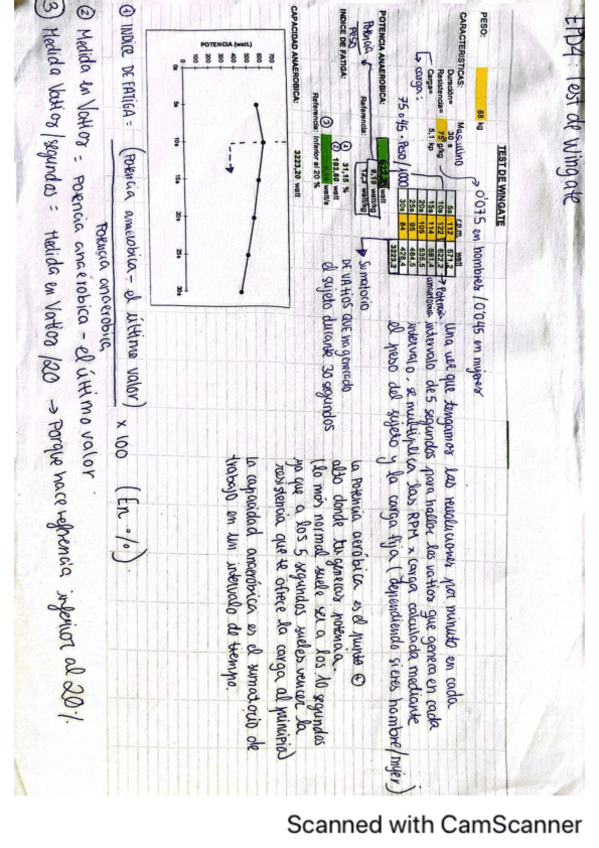 EPD4: Test de Wingate
TEST DE WINGATE
PESO: 68 kg
0'075 en hombres / 0'045 en mujeres
CARACTERISTICAS: Masculino
Duración= 30 s
Resistencia= 75 g/kg
Carga= 5,1 kp
r.p.m. watt
5s 112 571,2
10s 122 622,2 → Potencia anaeróbica
15s 114 581,4
20s 105 535,5
25s 95 484,5
30s 84 428,4
3223,2
↳ carga:
75 o 45 · Peso / 1000
Una vez que tengamos las revoluciones por minuto en cada
intervalo de 5 segundos para hallar los vatios que genera en cada
intervalo, se multiplica las RPM x carga calculada mediante
el peso del sujeto y la carga fija (dependiendo si eres hombre/mujer)
POTENCIA ANAEROBICA: 622,20 watt
Potencia
PESO
9,15 watt/kg
Referencia:
INDICE DE FATIGA:
① 31,15 %
② 193,80 watt
③ watt/s
Referencia: Inferior al 20 %
CAPACIDAD ANAEROBICA: 3223,20 watt
↳ Sumatorio
DE VATIOS QUE ha generado
el sujeto durante 30 segundos
La Potencia aeróbica es el punto +
alto donde tu generas potencia.
(lo más normal suele ser a los 10 segundos
ya que a los 5 segundos sueles vencer la
resistencia que te ofrece la carga al principio)
La capacidad anaeróbica es el sumatorio de
trabajo en un intervalo de tiempo.
POTENCIA (watt.)
700
600
500
400
300
200
100
0
0s 5s 10s 15s 20s 25s 30s
① INDICE DE FATIGA = (Potencia anaerobica - el último valor) x 100 (En %)
Potencia anaerobica
② Medida en Vatios = Potencia anaeróbica - el último valor
③ Medida Vatios/segundos = Medida en Vatios /20 → Porque hace referencia inferior al 20%
Scanned with CamScanner